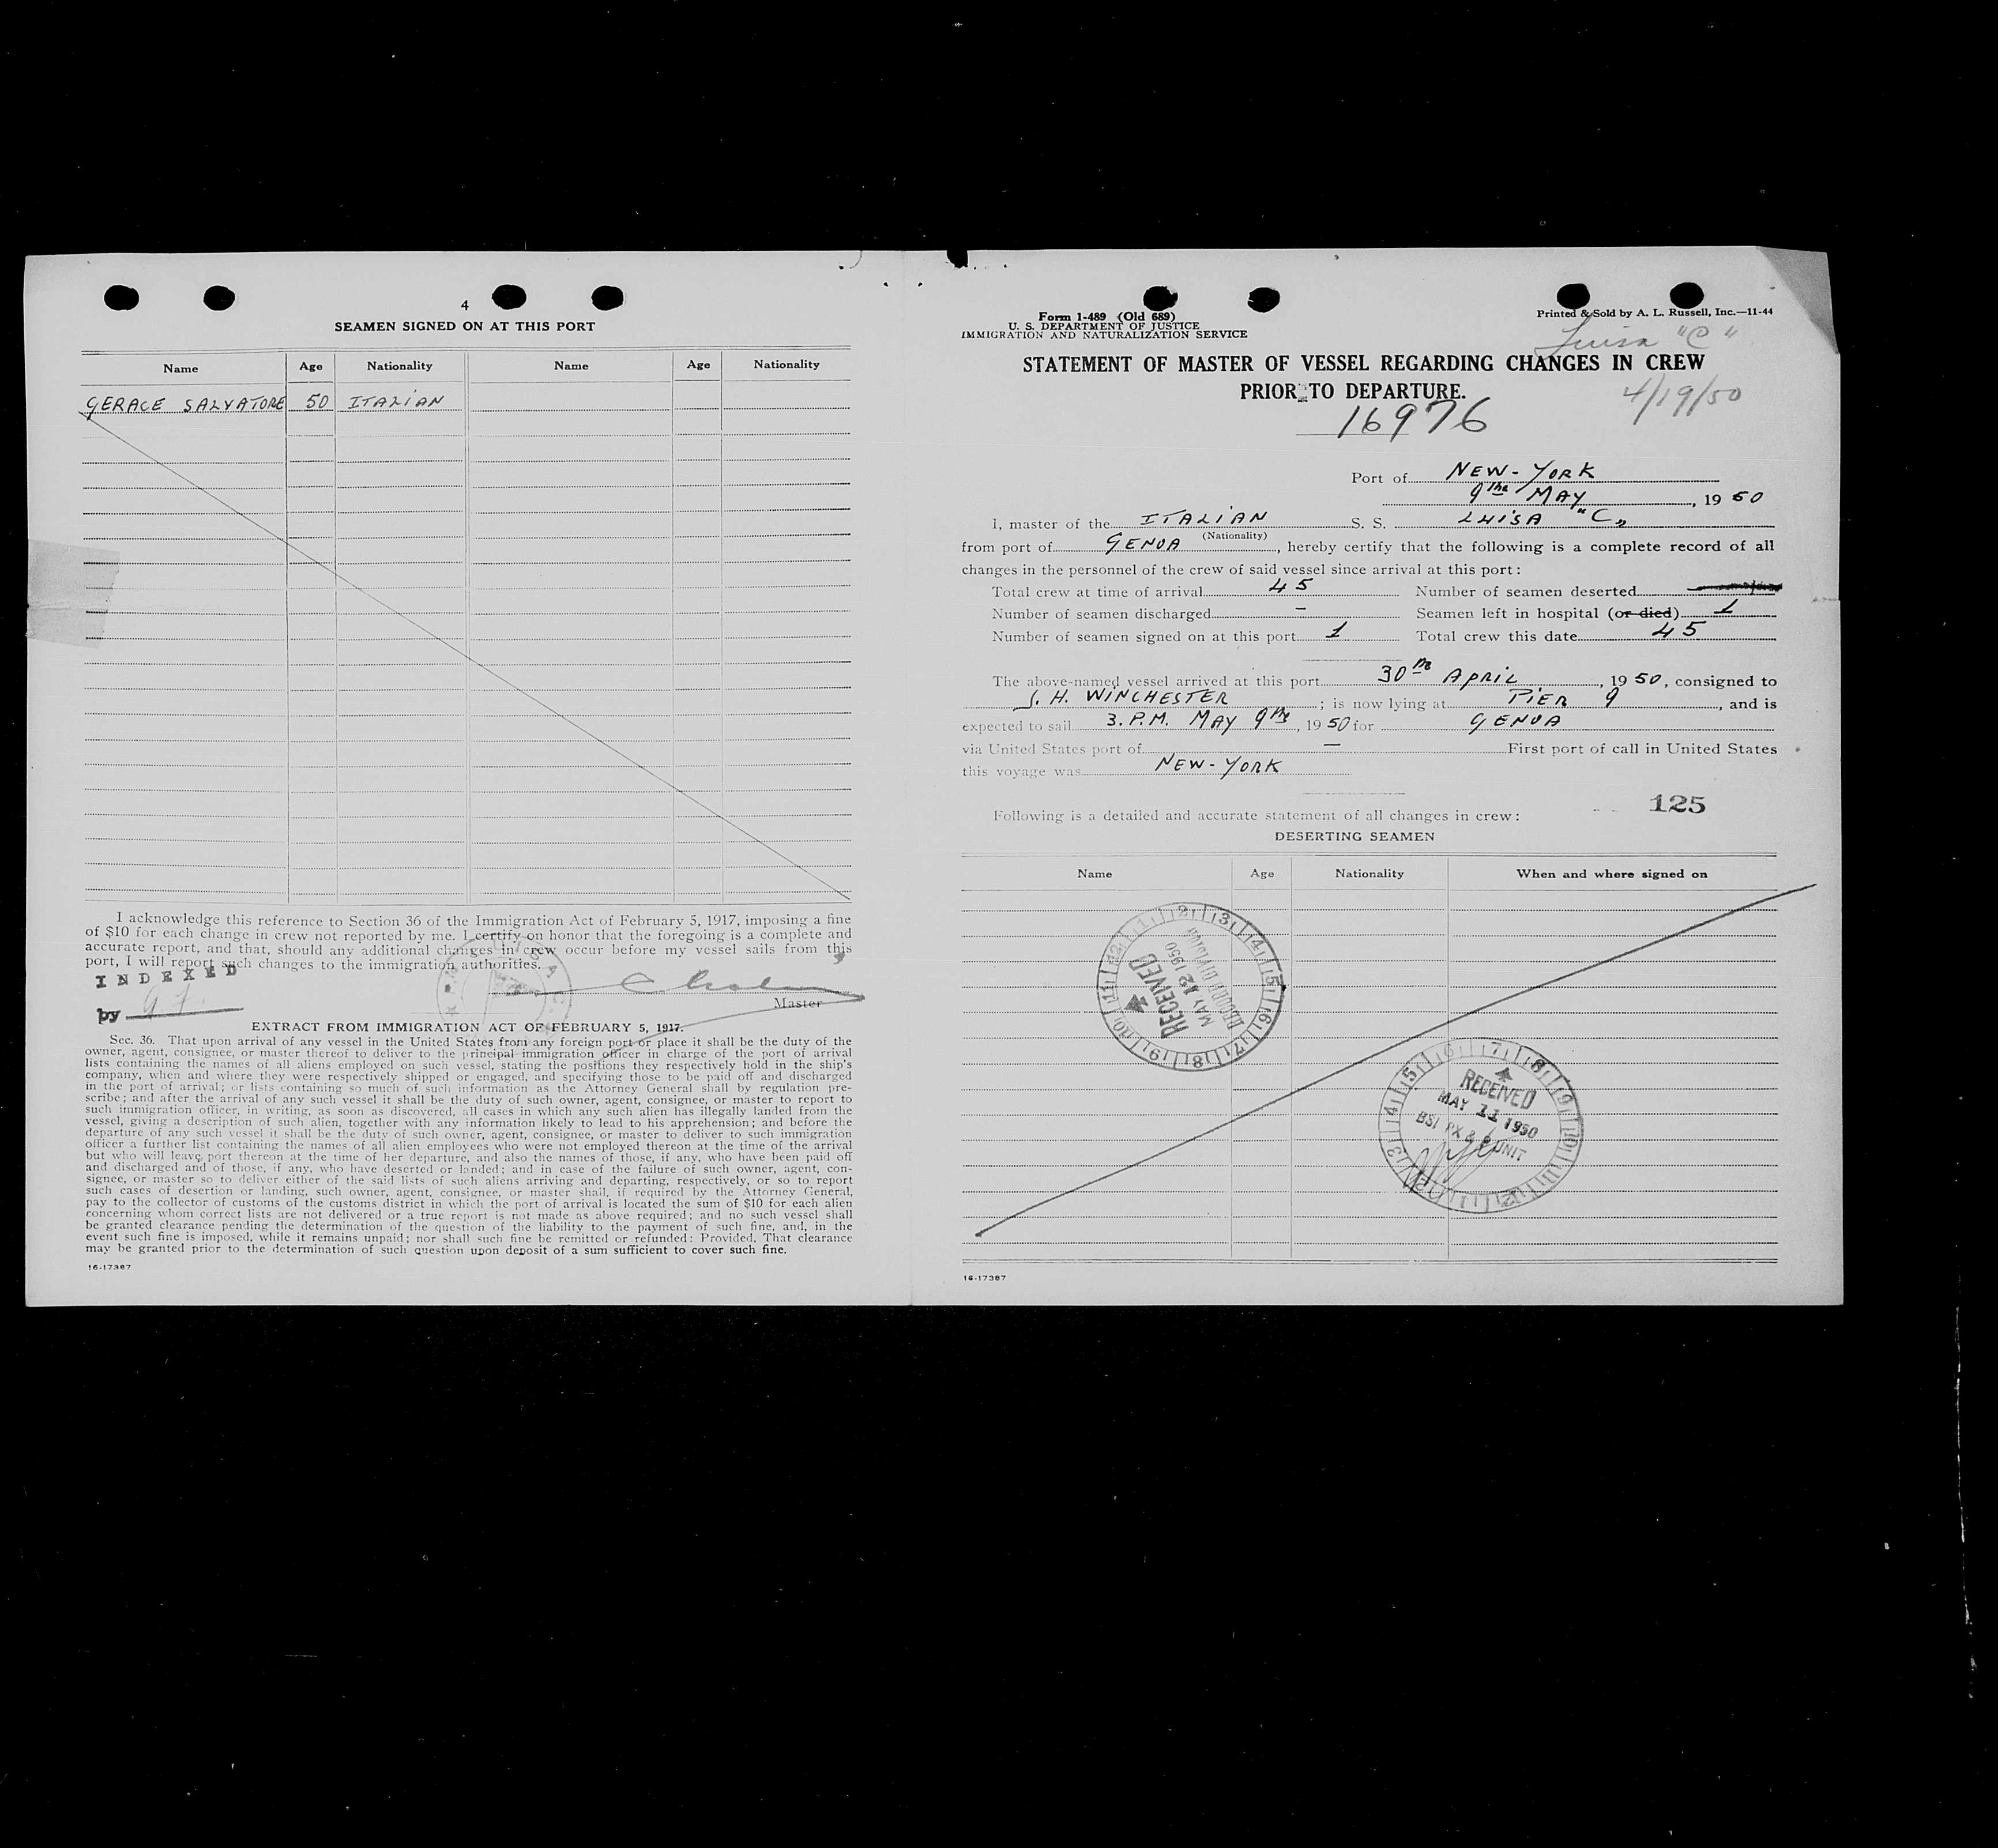 4
SEAMEN SIGNED ON AT THIS PORT
Name Age Nationality Name Age Nationality
GERACE SALVATORE 50 ITALIAN
I acknowledge this reference to Section 36 of the Immigration Act of February 5, 1917, imposing a fine
of $10 for each change in crew not reported by me. I certify on honor that the foregoing is a complete and
accurate report, and that, should any additional changes in crew occur before my vessel sails from this
port, I will report such changes to the immigration authorities.
INDEXED
by
Master
EXTRACT FROM IMMIGRATION ACT OF FEBRUARY 5, 1917.
Sec. 36. That upon arrival of any vessel in the United States from any foreign port or place it shall be the duty of the
owner, agent, consignee, or master thereof to deliver to the principal immigration officer in charge of the port of arrival
lists containing the names of all aliens employed on such vessel, stating the positions they respectively hold in the ship's
company, when and where they were respectively shipped or engaged, and specifying those to be paid off and discharged
in the port of arrival; or lists containing so much of such information as the Attorney General shall by regulation pre-
scribe; and after the arrival of any such vessel it shall be the duty of such owner, agent, consignee, or master to report to
such immigration officer, in writing, as soon as discovered, all cases in which any such alien has illegally landed from the
vessel, giving a description of such alien, together with any information likely to lead to his apprehension; and before the
departure of any such vessel it shall be the duty of such owner, agent, consignee, or master to deliver to such immigration
officer a further list containing the names of all alien employees who were not employed thereon at the time of the arrival
but who will leave port thereon at the time of her departure, and also the names of those, if any, who have been paid off
and discharged and of those, if any, who have deserted or landed; and in case of the failure of such owner, agent, con-
signee, or master so to deliver either of the said lists of such aliens arriving and departing, respectively, or so to report
such cases of desertion or landing, such owner, agent, consignee, or master shall, if required by the Attorney General,
pay to the collector of customs of the customs district in which the port of arrival is located the sum of $10 for each alien
concerning whom correct lists are not delivered or a true report is not made as above required; and no such vessel shall
be granted clearance pending the determination of the question of the liability to the payment of such fine, and, in the
event such fine is imposed, while it remains unpaid; nor shall such fine be remitted or refunded: Provided, That clearance
may be granted prior to the determination of such question upon deposit of a sum sufficient to cover such fine.
16-17387
Form 1-489 (Old 689)
U. S. DEPARTMENT OF JUSTICE
IMMIGRATION AND NATURALIZATION SERVICE
Printed & Sold by A. L. Russell, Inc.—11-44
Luisa "C"
STATEMENT OF MASTER OF VESSEL REGARDING CHANGES IN CREW
PRIOR TO DEPARTURE.
4/19/50
16976
Port of NEW-YORK
9the MAY, 19 50
I, master of the ITALIAN S. S. LUISA "C"
(Nationality)
from port of GENOA, hereby certify that the following is a complete record of all
changes in the personnel of the crew of said vessel since arrival at this port:
Total crew at time of arrival 45 Number of seamen deserted
Number of seamen discharged - Seamen left in hospital (or died) 1
Number of seamen signed on at this port 1 Total crew this date 45
The above-named vessel arrived at this port 30the APRIL, 19 50, consigned to
J. H. WINCHESTER; is now lying at PIER 9, and is
expected to sail 3. P.M. MAY 9the, 19 50 for GENOA
via United States port of - First port of call in United States
this voyage was NEW-YORK
125
Following is a detailed and accurate statement of all changes in crew:
DESERTING SEAMEN
Name Age Nationality When and where signed on
RECEIVED
MAY 12 1950
RECORD DIVISION
RECEIVED
MAY 11 1950
BSI PX & UNIT
16-17387